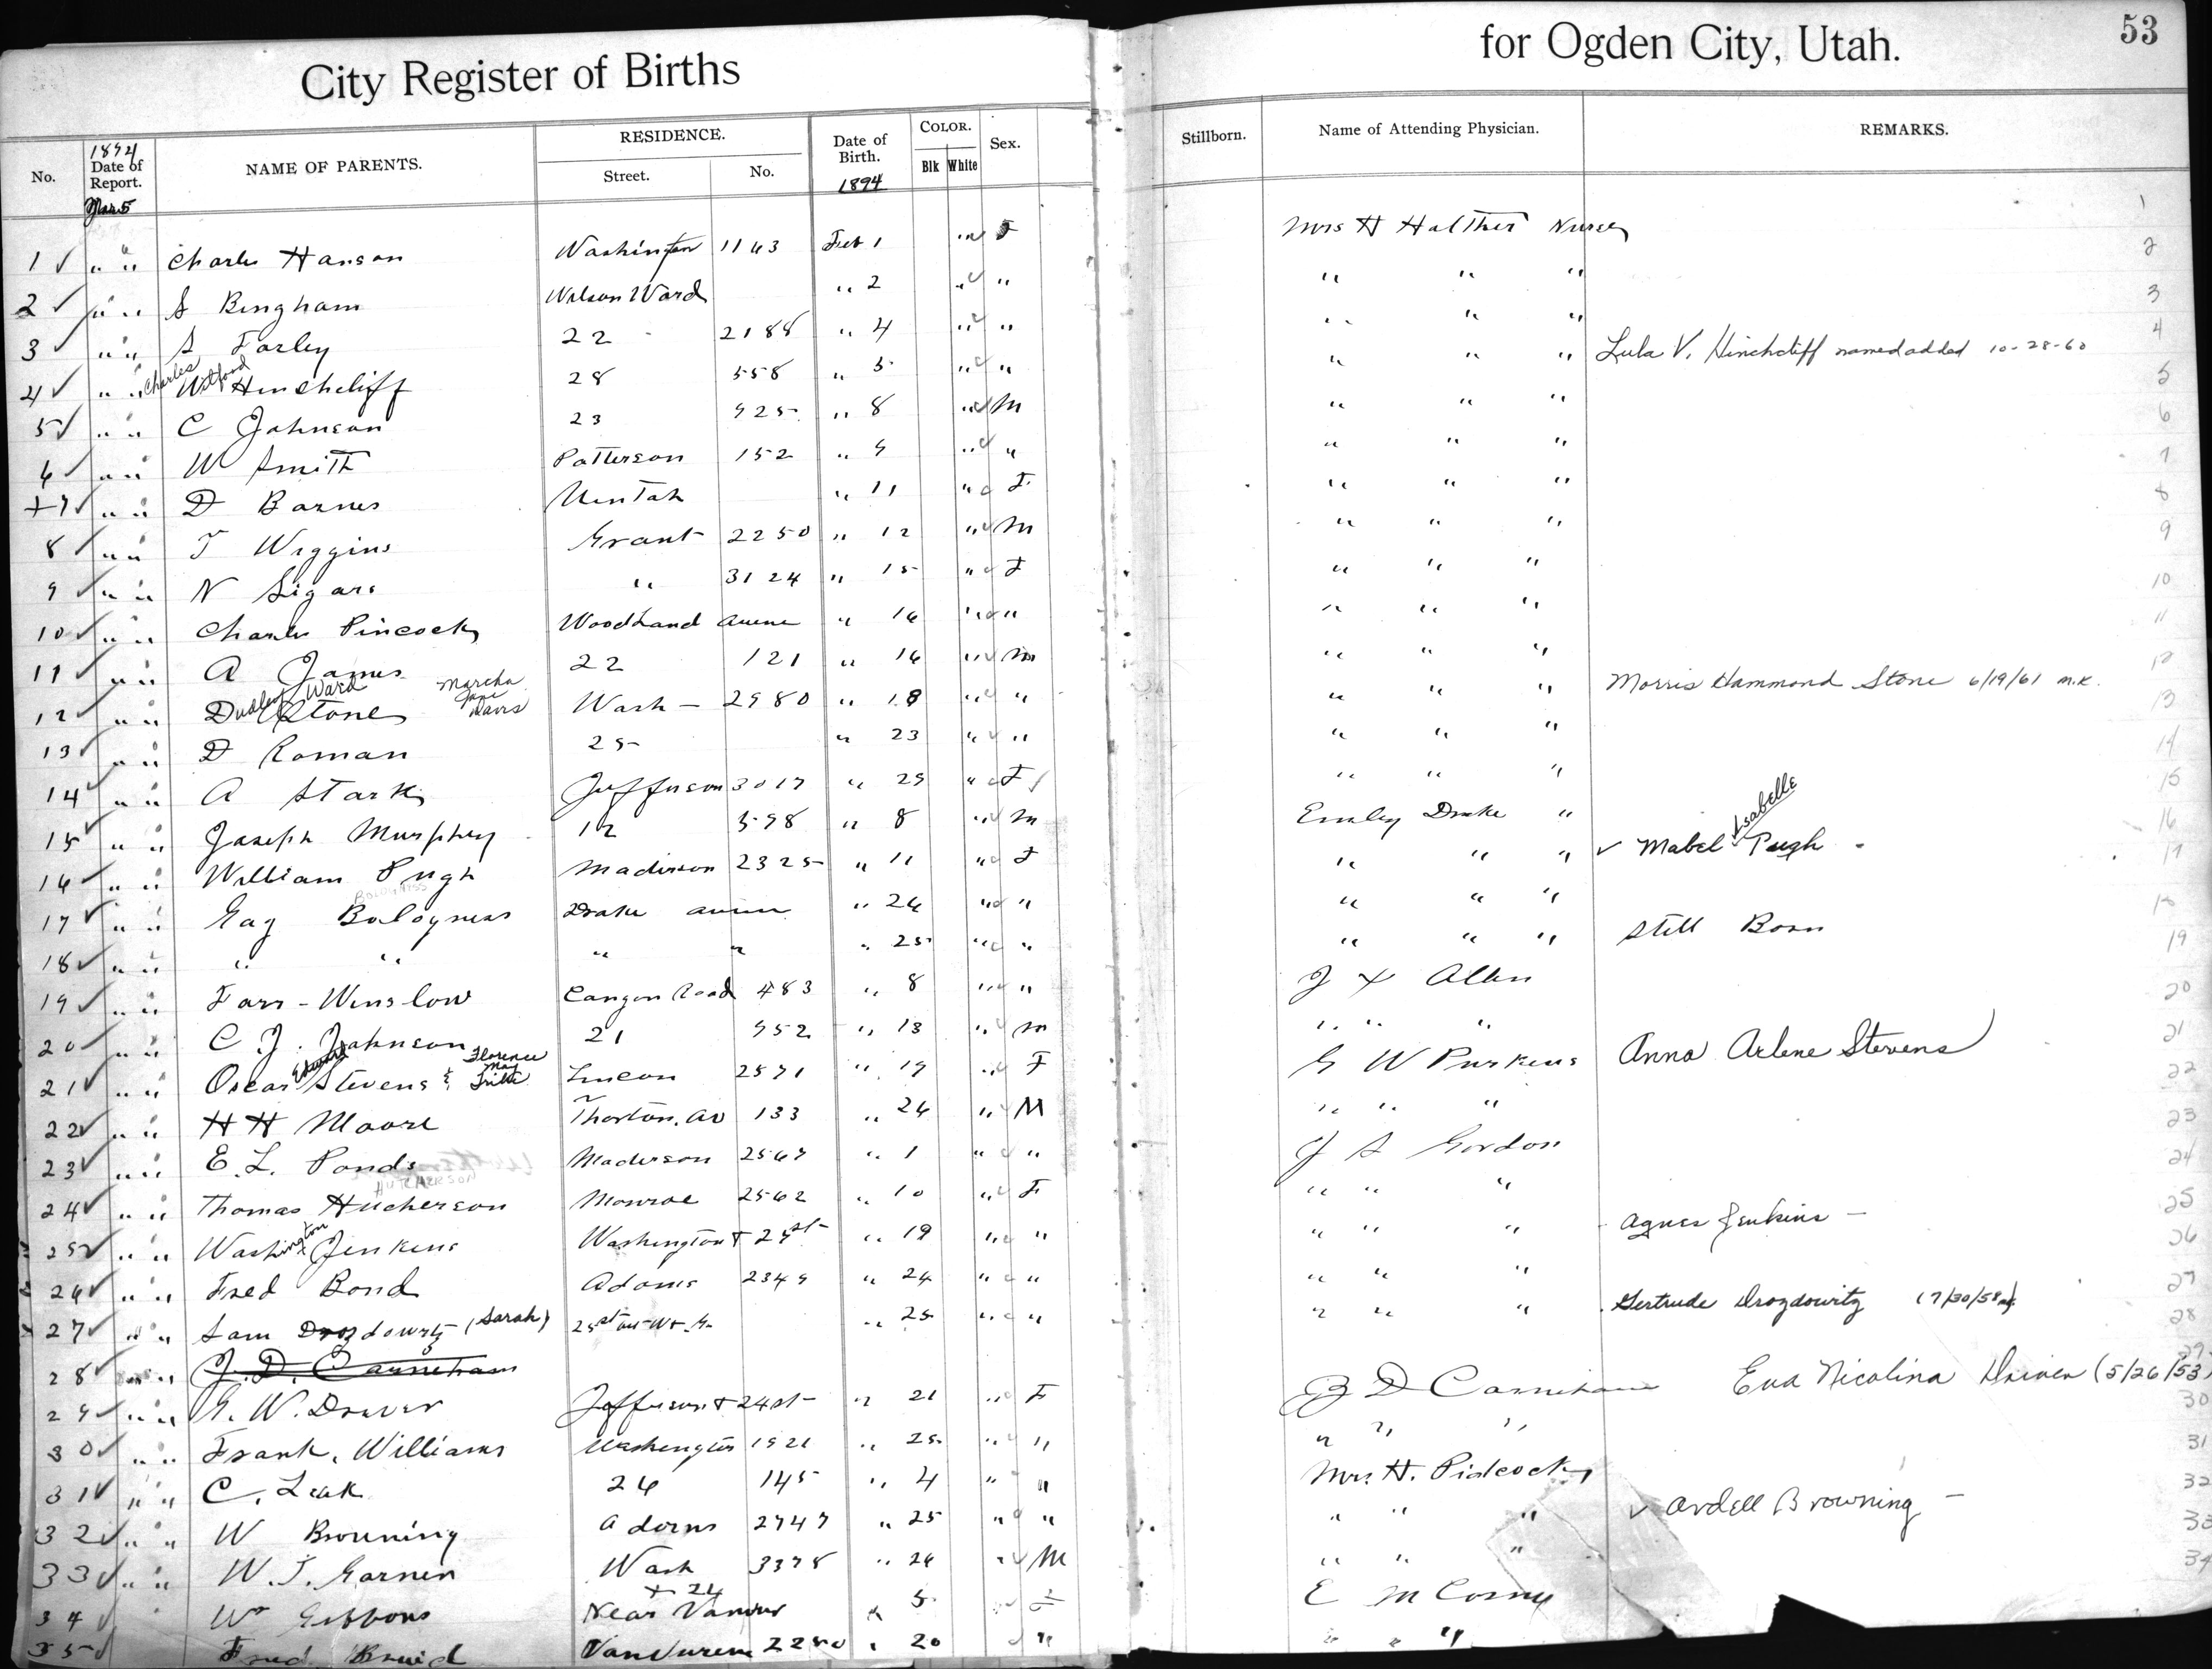 City Register of Births for Ogden City, Utah. 53
No. 1894 Date of Report. NAME OF PARENTS. RESIDENCE. Street. No. Date of Birth. 1894 COLOR. Blk White Sex. Stillborn. Name of Attending Physician. REMARKS.
Mar 5
1 ✓ " " Charles Hanson Washington 1163 Feb 1 " ✓ F Mrs H Halther Nurse 1
2 ✓ " " S Bingham Wilson Ward " 2 " ✓ " " " " 2
3 ✓ " " S Farley 22 2188 " 4 " ✓ " " " " 3
4 ✓ " " Charles Wilford Hinshcliff 28 558 " 5 " ✓ " " " " Lula V. Hinchcliff named added 10-28-60 4
5 ✓ " " C Johnson 23 925 " 8 " ✓ M " " " 5
6 ✓ " " W Smith Patterson 152 " 9 " ✓ " " " " 6
+7 ✓ " " D Barnes Uintah " 11 " ✓ F " " " 7
8 ✓ " " T Wiggins Grant 2250 " 12 " ✓ M " " " 8
9 ✓ " " N Sigars " 3124 " 15 " ✓ F " " " 9
10 ✓ " " Charles Pincock Woodland Avenue " 16 " ✓ " " " " 10
11 ✓ " " A James 22 121 " 16 " ✓ M " " " 11
12 ✓ " " Dudley Ward Stone Marcha Jane Davis Wash - 2980 " 18 " ✓ " " " " Morris Hammond Stone 6/19/61 m.k. 12
13 ✓ " " D Roman 25 " 23 " ✓ " " " " 13
14 ✓ " " A Stark Jefferson 3017 " 25 " ✓ F " " " 14
15 ✓ " " Joseph Murphey 12 598 " 8 " ✓ M Emley Drake " 15
16 ✓ " " William Pugh Madison 2325 " 11 " ✓ F " " " ✓ Mabel Isabelle Pugh 16
17 ✓ " " Gag Bologness Drake avenue " 24 " ✓ " " " " 17
18 ✓ " " " " " " " 25 " ✓ " " " " Still Born 18
19 ✓ " " Farr - Winslow Canyon Road 483 " 8 " ✓ " J X Allen 19
20 ✓ " " C. J. Johnson 21 952 " 13 " ✓ M " " " 20
21 ✓ " " Oscar Edward Stevens & Florence May Tribe Lincon 2571 " 19 " ✓ F G W Purkens Anna Arlene Stevens 21
22 ✓ " " H H Moore Thorton. Av 133 " 26 " ✓ M " " " 22
23 ✓ " " E. L. Ponds Maderson 2567 " 1 " ✓ " J S Gordon 23
HUTCHERSON
24 ✓ " " Thomas Hucherson Monroe 2562 " 10 " ✓ F " " " 24
25 ✓ " " Washington Jenkens Washington + 29st " 19 " ✓ " " " " Agnes Jenkins - 25
26 ✓ " " Fred Bond Adams 2349 " 24 " ✓ " " " " 26
27 ✓ " " Sam Drozdowitz (Sarah) 25st " 25 " ✓ " " " " Gertrude Drozdowitz (7/30/58) 27
28 ✓ " " J. D. Carneham 28
29 ✓ " " G. W. Draver Jefferson + 24st " 21 " ✓ F J D Carnehan Eva Nicolina Driver (5/26/53) 29
30 ✓ " " Frank. Williams Washington 1921 " 25 " ✓ " " " " 30
31 ✓ " " C. Leak 26 145 " 4 " " Mrs. H. Pidcock 31
32 ✓ " " W Browning Adams 2747 " 25 " ✓ " " " " ✓ Ardell Browning - 32
33 ✓ " " W. T. Garner Wash 3378 " 26 " ✓ M " " " 33
34 ✓ Wm Gibbons Near + 24 " 5 E M Corney 34
35 ✓ Fred Vanburen 2280 " 20 ✓ " " " "